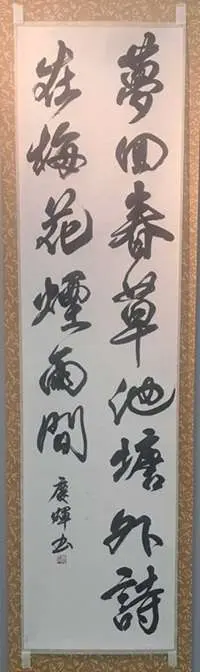 夢回春草池塘外詩
在梅花煙雨間
廣輝书